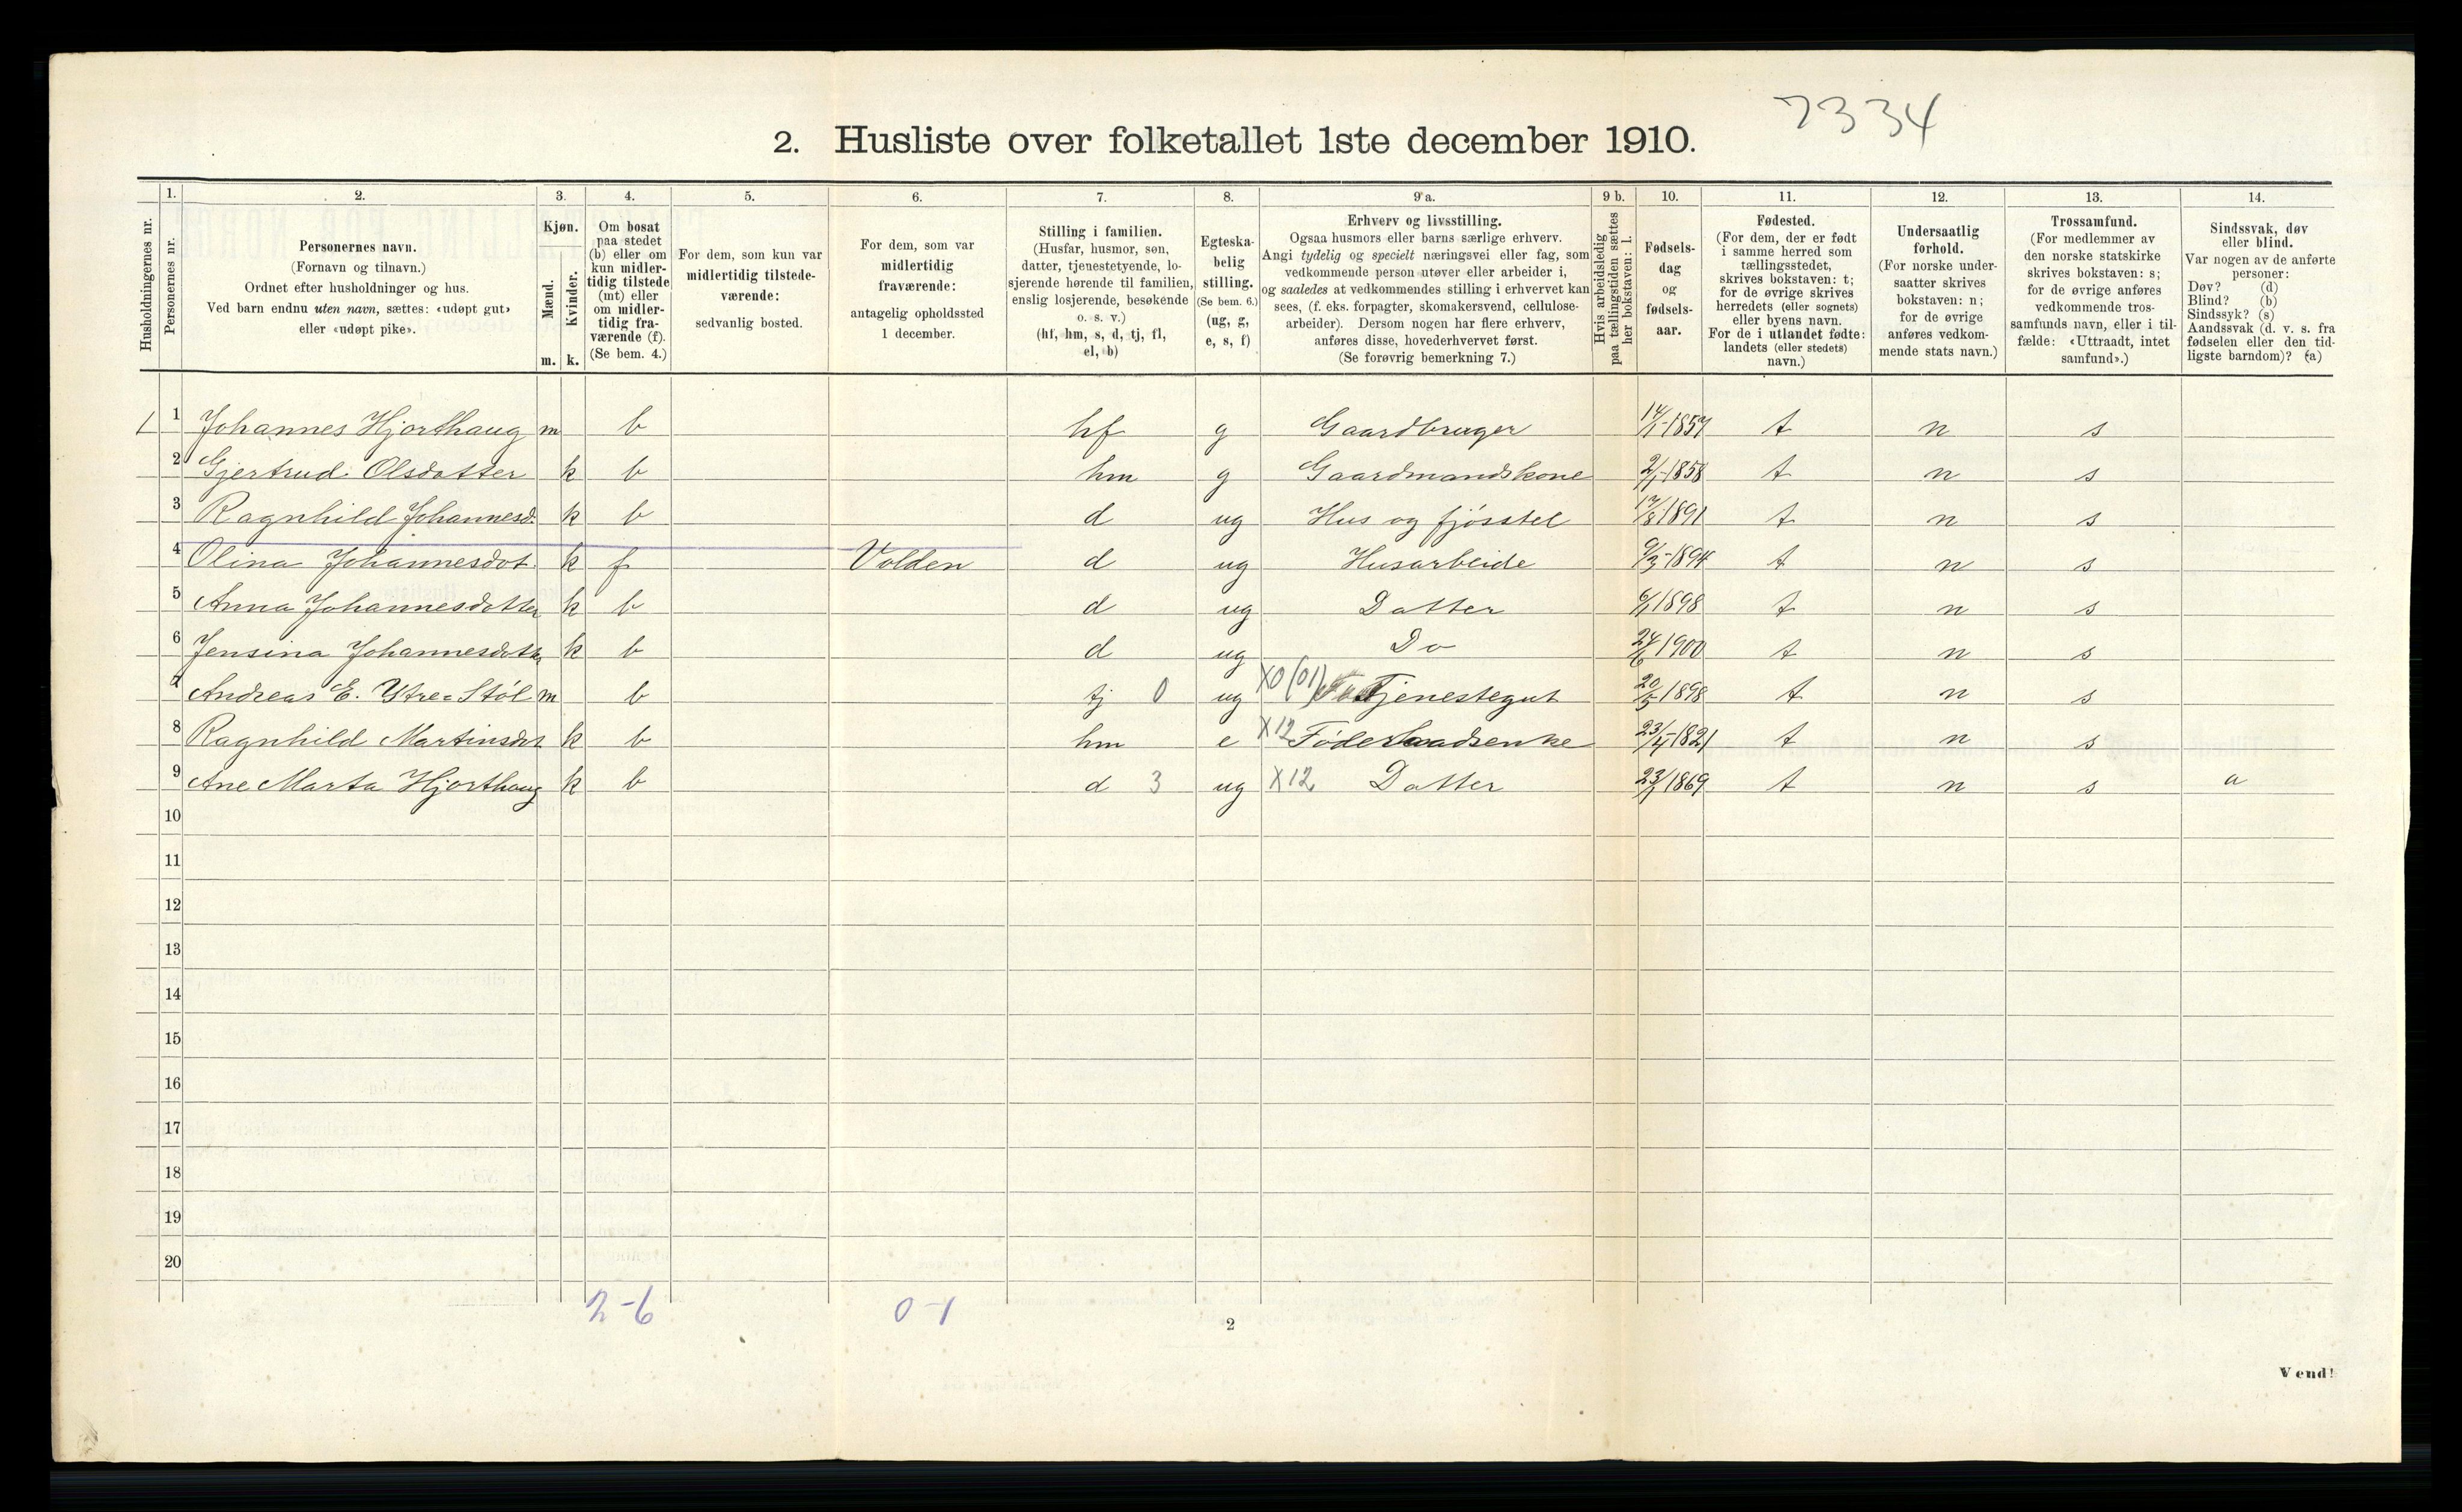 7334
2. Husliste over folketallet 1ste december 1910.
Husholdningernes nr.
1. Personernes nr.
2. Personernes navn. (Fornavn og tilnavn.) Ordnet efter husholdninger og hus. Ved barn endnu uten navn, sættes: «udøpt gut» eller «udøpt pike».
3. Kjøn. Mænd. m. Kvinder. k.
4. Om bosat paa stedet (b) eller om kun midlertidig tilstede (mt) eller om midlertidig fraværende (f). (Se bem. 4.)
5. For dem, som kun var midlertidig tilstedeværende: sedvanlig bosted.
6. For dem, som var midlertidig fraværende: antagelig opholdssted 1 december.
7. Stilling i familien. (Husfar, husmor, søn, datter, tjenestetyende, losjerende hørende til familien, enslig losjerende, besøkende o. s. v.) (hf, hm, s, d, tj, fl, el, b)
8. Egteskabelig stilling. (Se bem. 6.) (ug, g, e, s, f)
9 a. Erhverv og livsstilling. Ogsaa husmors eller barns særlige erhverv. Angi tydelig og specielt næringsvei eller fag, som vedkommende person utøver eller arbeider i, og saaledes at vedkommendes stilling i erhvervet kan sees, (f. eks. forpagter, skomakersvend, cellulosearbeider). Dersom nogen har flere erhverv, anføres disse, hovederhvervet først. (Se forøvrig bemerkning 7.)
9 b. Hvis arbeidsledig paa tællingstiden sættes her bokstaven: l.
10. Fødselsdag og fødselsaar.
11. Fødested. (For dem, der er født i samme herred som tællingsstedet, skrives bokstaven: t; for de øvrige skrives herredets (eller sognets) eller byens navn. For de i utlandet fødte: landets (eller stedets) navn.)
12. Undersaatlig forhold. (For norske undersaatter skrives bokstaven: n; for de øvrige anføres vedkommende stats navn.)
13. Trossamfund. (For medlemmer av den norske statskirke skrives bokstaven: s; for de øvrige anføres vedkommende trossamfunds navn, eller i tilfælde: «Uttraadt, intet samfund».)
14. Sindssvak, døv eller blind. Var nogen av de anførte personer: Døv? (d) Blind? (b) Sindssyk? (s) Aandssvak (d. v. s. fra fødselen eller den tidligste barndom)? (a)
1 1 Johannes Hjorthaug m b hf g Gaardbruger 14/1-1857 t n s
2 Gjertrud Olsdatter k b hm g Gaardmandskone 2/1-1858 t n s
3 Ragnhild Johannesd. k b d ug Hus og fjósstel 17/8-1891 t n s
4 Olina Johannesdot. k f Volden d ug Husarbeide 9/3-1894 t n s
5 Anna Johannesdotter k b d ug Datter 6/1 1898 t n s
6 Jensina Johannesdotter k b d ug Do 24/6 1900 t n s
7 Andreas E. Ytre-Stól m b tj 0 ug X0 (01) Tjenestegut 20/5 1898 t n s
8 Ragnhild Martinsdot k b hm e X12 Föderaadsenke 23/4-1821 t n s
9 Ane Marta Hjorthaug k b d 3 ug X12 Datter 23/1 1869 t n s a
10
11
12
13
14
15
16
17
18
19
20
2-6 0-1
2
Vend!